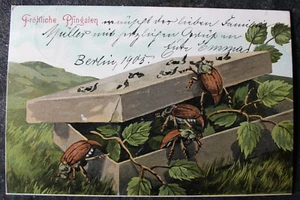 Fröhliche Pfingsten wünscht der lieben Familie
Müller mit herzlichen Grüßen
Eure Emma
Berlin 1905.